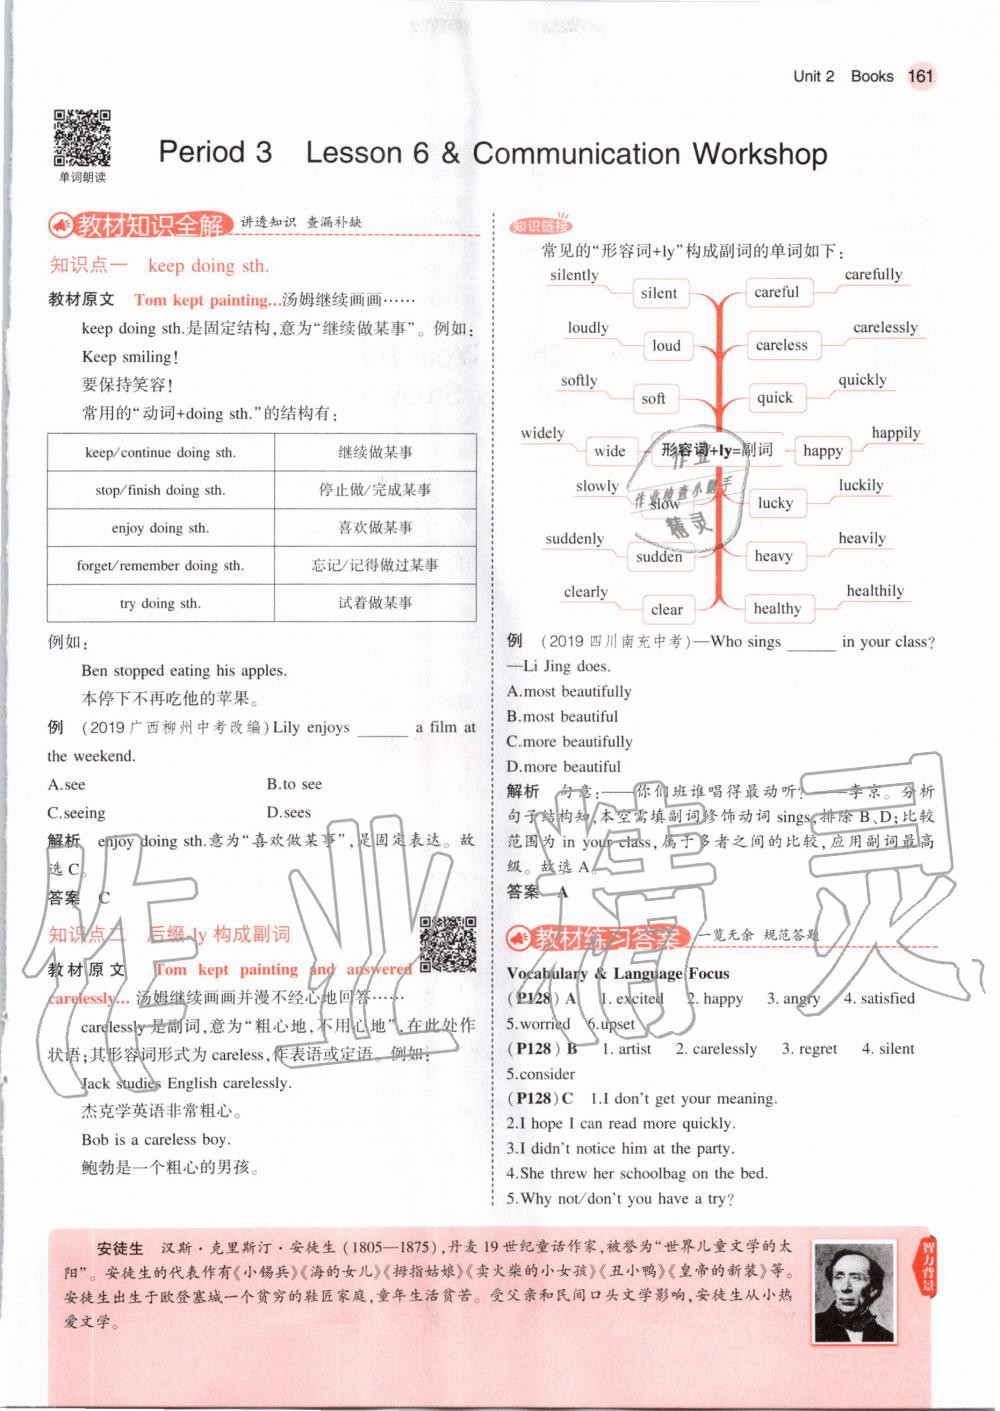 Unit 2 Books 161
单词朗读
Period 3 Lesson 6 & Communication Workshop
教材知识全解 讲透知识 查漏补缺
知识点一 keep doing sth.
教材原文 Tom kept painting...汤姆继续画画……
keep doing sth.是固定结构,意为“继续做某事”。例如:
Keep smiling!
要保持笑容!
常用的“动词+doing sth.”的结构有:
keep/continue doing sth. 继续做某事
stop/finish doing sth. 停止做/完成某事
enjoy doing sth. 喜欢做某事
forget/remember doing sth. 忘记/记得做过某事
try doing sth. 试着做某事
例如:
Ben stopped eating his apples.
本停下不再吃他的苹果。
例 (2019广西柳州中考改编)Lily enjoys ______ a film at
the weekend.
A.see B.to see
C.seeing D.sees
解析 enjoy doing sth.意为“喜欢做某事”,是固定表达。故
选C。
答案 C
知识点二 后缀-ly构成副词
教材原文 Tom kept painting and answered
carelessly...汤姆继续画画并漫不经心地回答……
carelessly是副词,意为“粗心地,不用心地”,在此处作
状语;其形容词形式为careless,作表语或定语。例如:
Jack studies English carelessly.
杰克学英语非常粗心。
Bob is a careless boy.
鲍勃是一个粗心的男孩。
知识链接
常见的“形容词+ly”构成副词的单词如下:
silently silent careful carefully
loudly loud careless carelessly
softly soft quick quickly
widely wide 形容词+ly=副词 happy happily
slowly slow lucky luckily
suddenly sudden heavy heavily
clearly clear healthy healthily
例 (2019四川南充中考)—Who sings ______ in your class?
—Li Jing does.
A.most beautifully
B.most beautiful
C.more beautifully
D.more beautiful
解析 句意:——你们班谁唱得最动听?——李京。分析
句子结构知,本空需填副词修饰动词sings,排除B、D;比较
范围为in your class,属于多者之间的比较,应用副词最高
级。故选A。
答案 A
教材练习答案 一览无余 规范答题
Vocabulary & Language Focus
(P128) A 1. excited 2. happy 3. angry 4. satisfied
5.worried 6.upset
(P128) B 1. artist 2. carelessly 3. regret 4. silent
5.consider
(P128)C 1.I don't get your meaning.
2.I hope I can read more quickly.
3.I didn't notice him at the party.
4.She threw her schoolbag on the bed.
5.Why not/don't you have a try?
安徒生 汉斯·克里斯汀·安徒生(1805—1875),丹麦19世纪童话作家,被誉为“世界儿童文学的太
阳”。安徒生的代表作有《小锡兵》《海的女儿》《拇指姑娘》《卖火柴的小女孩》《丑小鸭》《皇帝的新装》等。
安徒生出生于欧登塞城一个贫穷的鞋匠家庭,童年生活贫苦。受父亲和民间口头文学影响,安徒生从小热
爱文学。
智力背景
作业
作业检查小助手
精灵
作业精灵